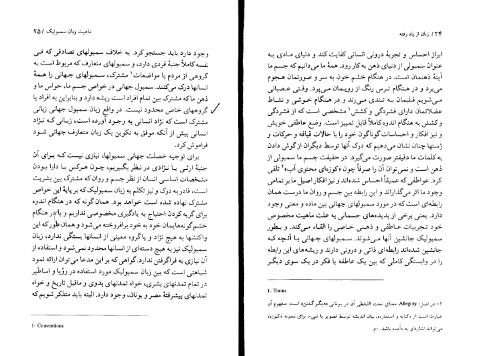 ۲۴ / زبان از یاد رفته
ابراز احساس و تجربهٔ درونی انسانی کفایت کند و دنیای مادی به
عنوان سمبولی از دنیای ذهن به کار رود. همهٔ ما می‌دانیم که جسم ما
آینهٔ ذهنمان است. در هنگام خشم خون به سر و صورتمان هجوم
می‌برد و در هنگام ترس رنگ از رویمان می‌پرد. وقتی عصبانی
می‌شویم قلبمان به تندی می‌زند و در هنگام خوشی و نشاط
عضلاتمان دارای فشردگی و کشش مشخصی است که از فشردگی
و کشش به هنگام اندوه کاملاً قابل تمیز است. وضع عاطفی خویش
و نیز افکار و احساسات گوناگون خود را با حالات قیافه و حرکات و
ژستها چنان نشان می‌دهیم که درک آنها توسط دیگران از گوش دادن
به کلمات ما دقیقتر صورت می‌گیرد. در حقیقت جسم ما سمبولی از
ذهن است و نمی‌توان آن را صرفاً چون «کوزه‌ای محتوی آب»۲ تلقی
کرد. عواطفی که عمیقاً احساس شده‌اند و نیز افکار اصیل ما بر تمامی
وجود ما اثر می‌گذارند و این رابطه بین جسم و روان ما درست همان
رابطه‌ای است که در مورد سمبولهای جهانی بین ماده و معنی وجود
دارد. یعنی برخی از پدیده‌های جسمانی به علت ماهیت مخصوص
خود تجربیات عاطفی و ذهنی خاصی را القاء می‌کنند. و بطور
سمبولیک جانشین آنها می‌شوند. سمبولهای جهانی با آنچه که
جانشین شده‌اند رابطه‌ای ذاتی و درونی دارند و ریشه‌های این رابطه
را در وابستگی کاملی که بین یک عاطفه یا فکر در یک سوی دیگر
۲- در اصل: Allegory
ماهیت زبان سمبولیک / ۲۵
وجود دارد باید جستجو کرد. به خلاف سمبولهای تصادفی که فی
نفسه کاملاً جنبهٔ فردی دارد، و سمبولهای متعارف که مربوط به
گروهی از مردم یا مواضعات۱ مشترک، سمبولهای جهانی را همهٔ
انسانها درک می‌کنند. سمبول جهانی در خواص جسم ما، حواس ما و
ذهن ما که مشترک بین تمام افراد است ریشه دارد و بنابراین به افراد یا
گروههای خاص محدود نیست. در واقع زبان سمبولهای جهانی زبانی
مشترک است که نژاد انسانی به وجود آورده است، زبانی که نژاد
انسانی پیش از آنکه موفق به تکوین یک زبان متعارف جهانی شود
فراموش کرد.
برای توجیه خصلت جهانی سمبولها، نیازی نیست که برای آن
جنبهٔ ارثی یا نژادی در نظر بگیریم، چون هر کس با دارا بودن
مشخصات اساسی انسان از نظر جسم و روان که مشترک بین بشریت
است، قادر به درک و نیز تکلم به زبان سمبولیک که بر پایهٔ این خواص
مشترک نهاده شده است خواهد بود. همان گونه که در هنگام اندوه
برای گریه کردن احتیاج به یادگیری مخصوصی نداریم و یا در هنگام
خشم گونه‌هایمان خود به خود برافروخته می‌شود و همان طور که این
واکنشها به هیچ نژاد و یا گروه معینی از انسانها بستگی ندارد، زبان
سمبولیک نیز به هیچ دسته‌ای از انسانها محدود نمی‌شود و استفاده از
آن نیازی به فراگرفتن ندارد. گواهی که بر این مدعا می‌توان ارائه نمود
شباهتی است که بین زبان سمبولیک مورد استفاده در رؤیا و اساطیر
در تمام تمدنهای بشری، خواه تمدنهای بدوی و ماقبل تاریخ و خواه
تمدنهای پیشرفتهٔ مصر و یونان، وجود دارد. البته باید متذکر شویم که
1- Conventions